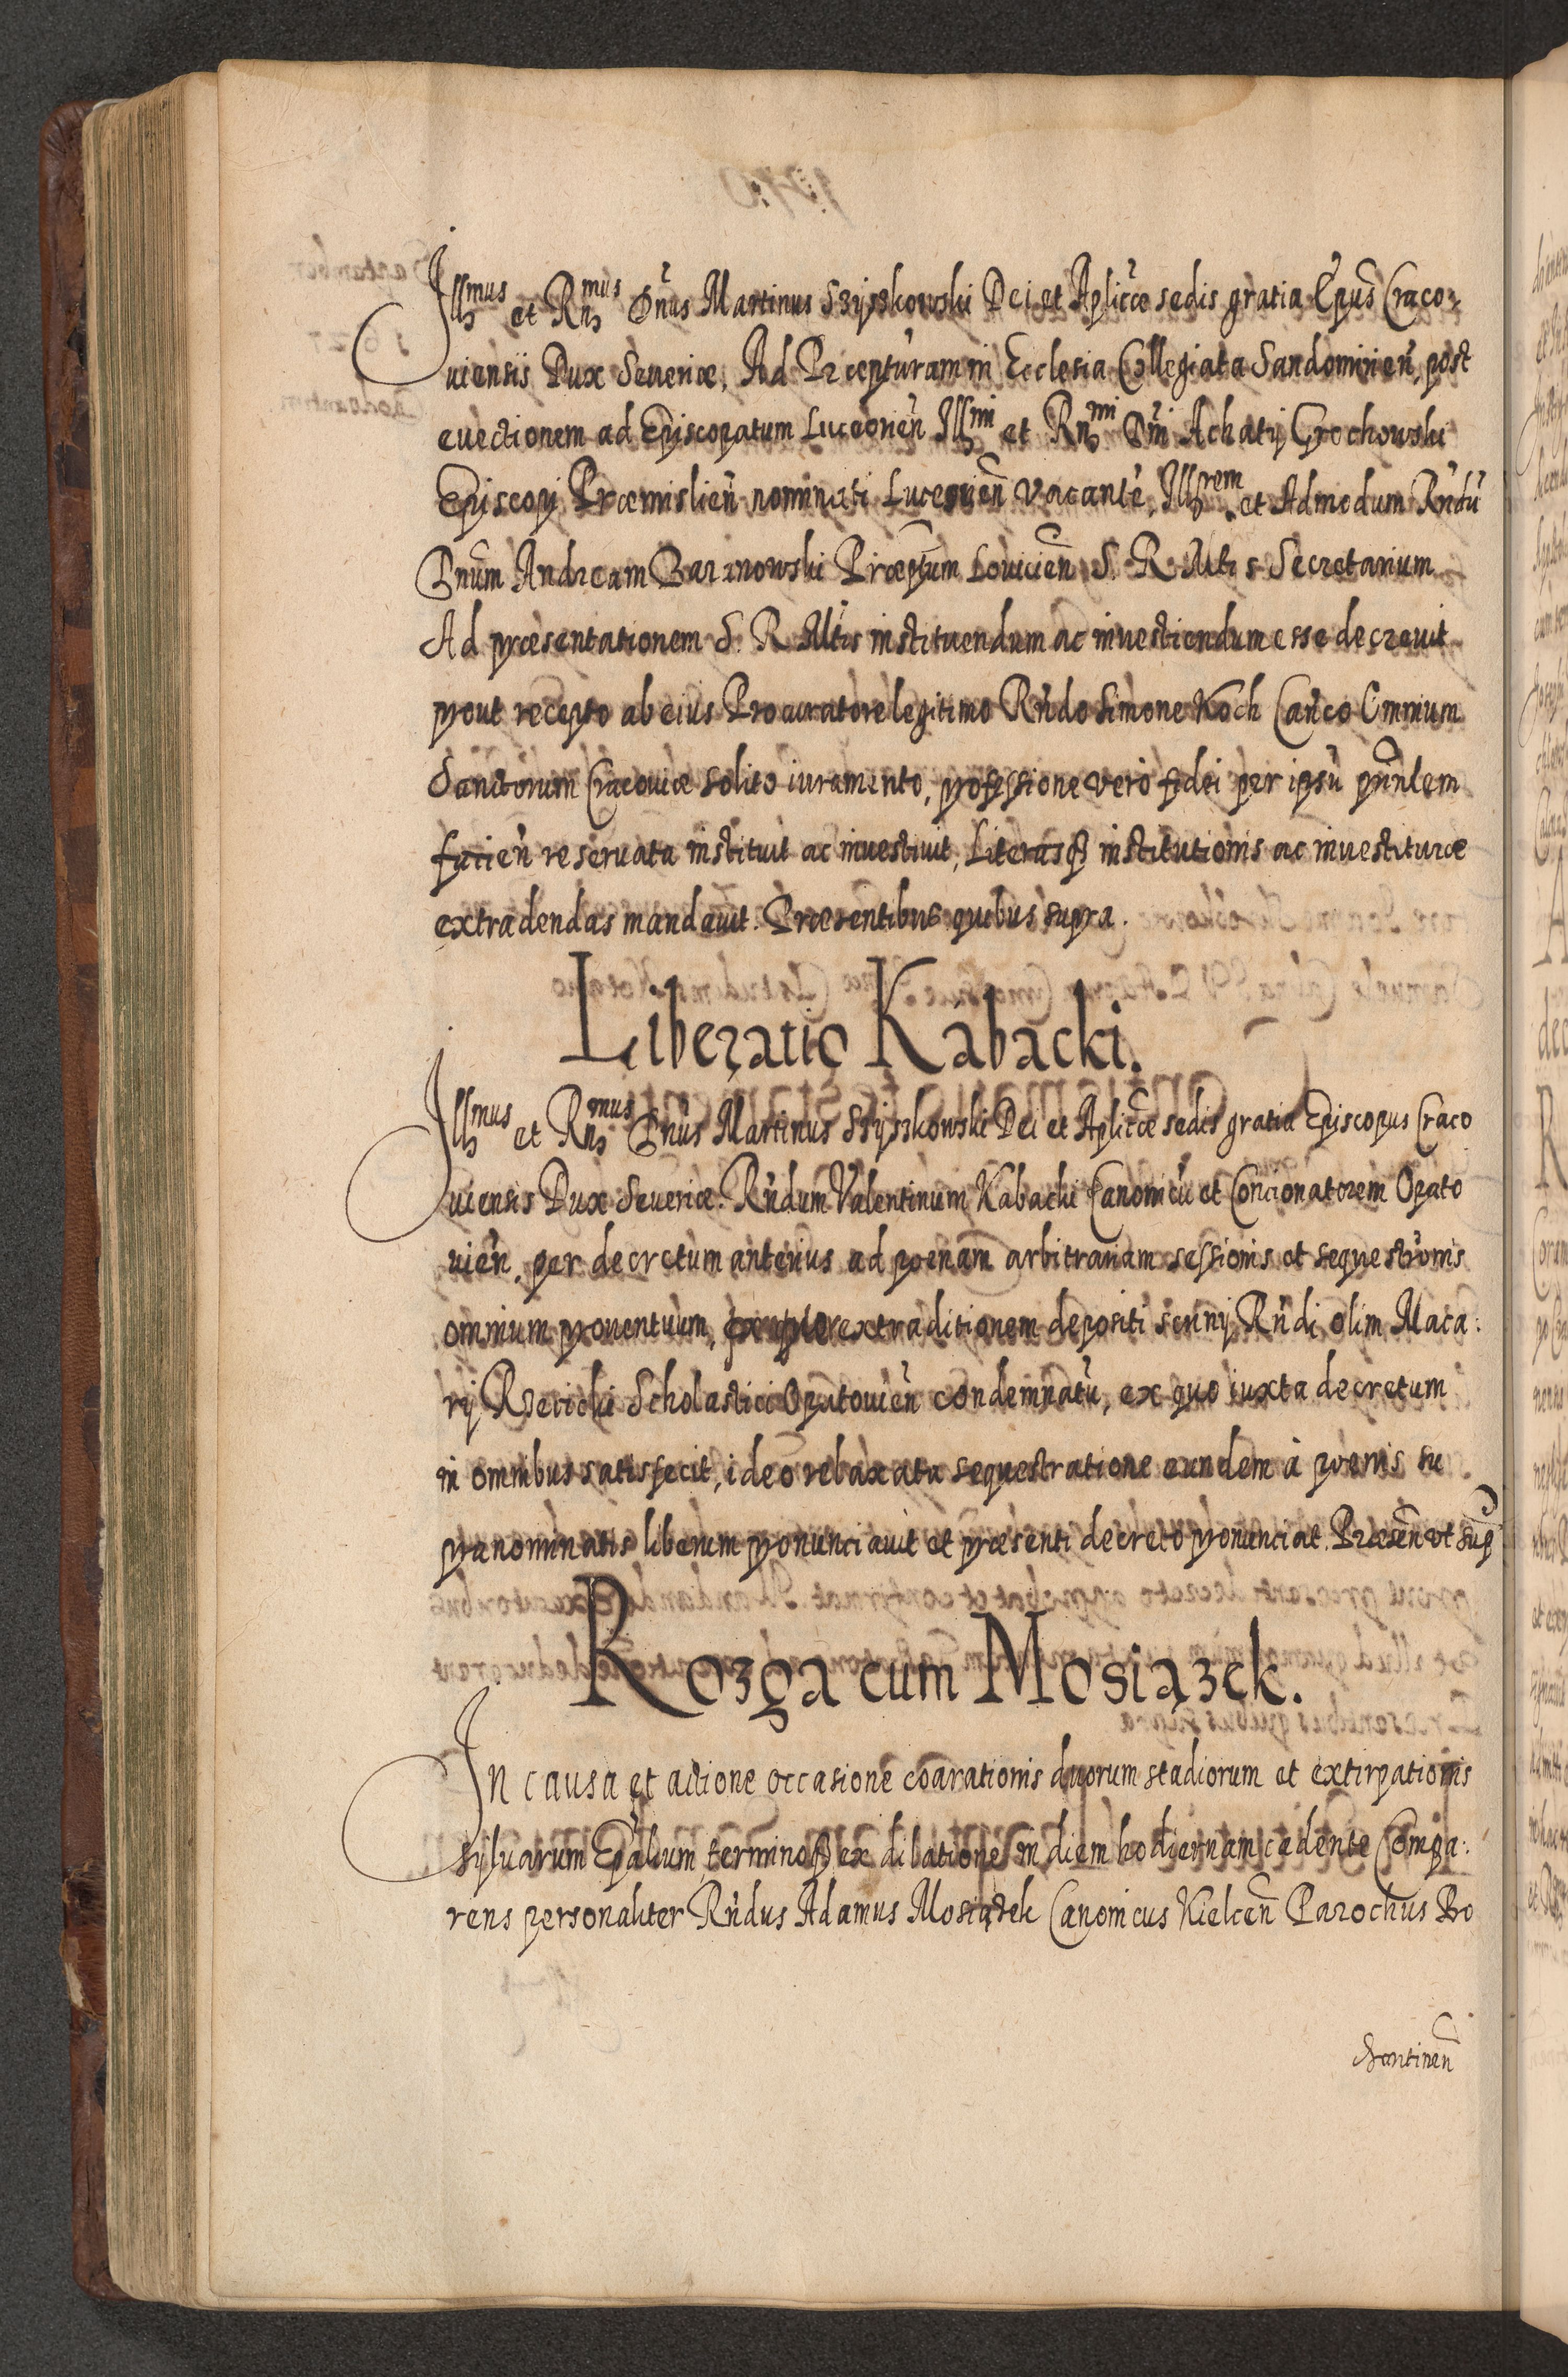 Illmus et Rnmus Dnus Martinus Szyszkowski Dei et Aplicæ sedis gratia Epus Craco-
uiensis Dux Seueriæ, Ad Præpturam in Ecclesia Collegiata Sandomirien, post
euectionem ad Episcopatum Luceorien Illmi et Rnmi Dni Achatij Grochowski
Episcopi Præmislien nominati Luceorien vacante, Illrem et Admodum Rndu
Dnum Andream Baranowski Præptum Louicien S. R. Mtis Secretarium
Ad præsentationem S. R. Mtis instituendum ac inuestiendum esse decreuit
prout recepto ab eius Procuratore legitimo Rndo Simone Koch Canco Omnium
Sanctorum Cracouiæ solito iuramento, professione vero fidei per ipsu pnntem
facien reseruata instituit ac inuestiuit, Literasq institutionis ac inuestituræ
extradendas mandauit. Præsentibus quibus supra.
Liberatio Kabacki.
Illmus et Rnmus Dnus Martinus Szyszkowski Dei et Aplicæ sedis gratia Episcopus Craco
uiensis Dux Seueriæ. Rndum Valentinum Kabacki Canonicu et Concionatorem Opato
uien, per decretum anterius ad poenam arbitrariam sessionis et sequestronis
omnium prouentuum, extraditionem depositi scrinij Rndi olim Maca:
rij Scholastici Opatouien condemnatu, ex quo iuxta decretum
in omnibus satisfecit, ideo relaxata sequestratione eundem à poenis su
pranominatis liberum pronunciauit et præsenti decreto pronunciat. Præsen vt sup
Rozga cum Mosiązek.
In causa et actione occasione coarationis duorum stadiorum et extirpationis
syluarum Epalium, terminoq ex dilatione in diem hodiernam cadente Compa:
rens personaliter Rndus Adamus Mosiązek Canonicus Kielcen Parochus Bo